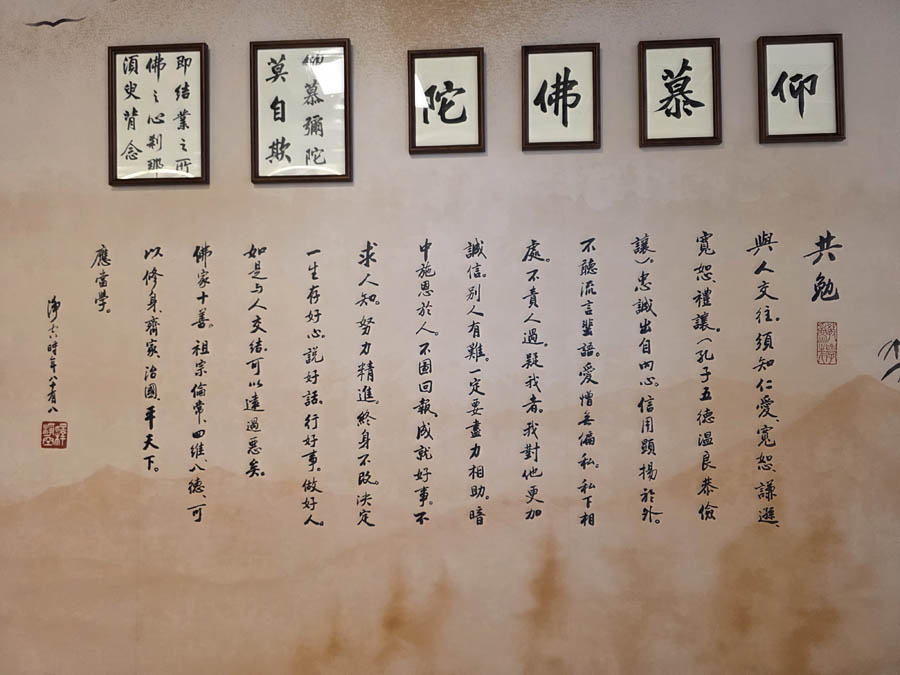 仰
慕
佛
陀
仰慕彌陀
莫自欺
即結業之所
佛之心剎那
須臾背念
共勉
與人交往。須知仁愛、寬恕、謙遜、
寬恕、禮讓。(孔子五德溫良恭儉
讓)、忠誠出自內心。信用顯揚於外。
不聽流言蜚語。愛憎无偏私。私下相
處。不責人過。疑我者。我對他更加
誠信。別人有難。一定要盡力相助。暗
中施恩於人。不圖回報。成就好事。不
求人知。努力精進。終身不改。決定
一生存好心。說好話。行好事。做好人。
如是与人交結。可以遠過惡矣。
佛家十善。祖宗倫常、四維、八德、可
以修身、齊家、治國、平天下。
應當學。
淨空時年八十有八